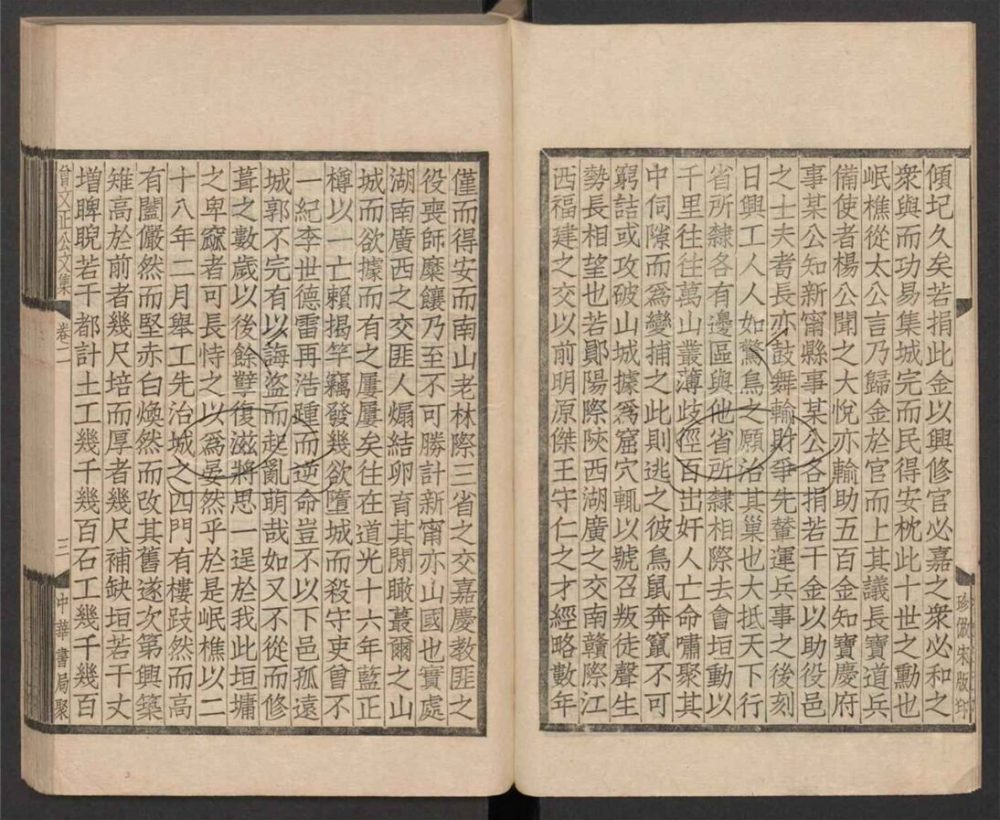 傾圮久矣若捐此金以興修官必嘉之衆必和之
衆與而功易集城完而民得安枕此十世之勳也
岷樵從太公言乃歸金於官而上其議長寶道兵
備使者楊公聞之大悅亦輸助五百金知寶慶府
事某公知新甯縣事某公各捐若干金以助役邑
之士夫耆長亦鼓舞輸財爭先輦運兵事之後刻
日興工人人如驚鳥之願治其巢也大抵天下行
省所隸各有邊區與他省所隸相際去會垣動以
千里往往萬山叢薄歧徑百出奸人亡命嘯聚其
中伺隙而爲變捕之此則逃之彼鳥鼠奔竄不可
窮詰或攻破山城據爲窟穴輒以號召叛徒聲生
勢長相望也若鄖陽際陝西湖廣之交南贛際江
西福建之交以前明原傑王守仁之才經略數年
珍倣宋版印
僅而得安而南山老林際三省之交嘉慶教匪之
役喪師糜饟乃至不可勝計新甯亦山國也實處
湖南廣西之交匪人煽結卵育其閒瞰蕞爾之山
城而欲據而有之屢屢矣往在道光十六年藍正
樽以一亡賴揭竿竊發幾欲墮城而殺守吏曾不
一紀李世德雷再浩踵而逆命豈不以下邑孤遠
城郭不完有以誨盜而起亂萌哉如又不從而修
葺之數歲以後餘孽復滋將思一逞於我此垣墉
之卑窳者可長恃之以爲晏然乎於是岷樵以二
十八年二月舉工先治城之四門有樓跂然而高
有闉儼然而堅赤白煥然而改其舊遂次第興築
雉高於前者幾尺培而厚者幾尺補缺垣若干丈
增睥睨若干都計土工幾千幾百石工幾千幾百
曾文正公文集 卷二 三 中華書局聚